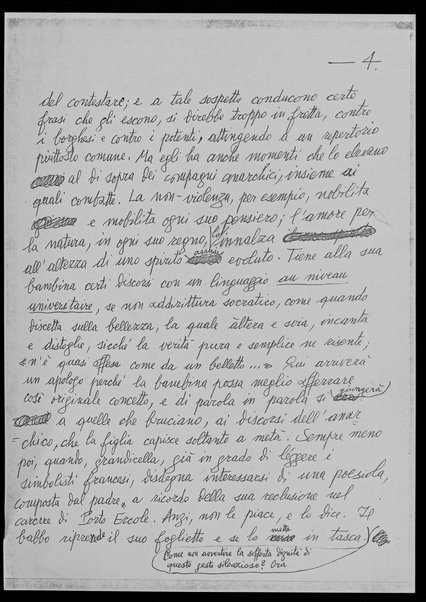 — 4.
del contestare; e a tale sospetto conducono certe
frasi che gli escono, si direbbe troppo in fretta, contro
i borghesi e contro i potenti, attingendo a un repertorio
piuttosto comune. Ma egli ha anche momenti che lo elevano
al di sopra dei compagni anarchici, insieme ai
quali combatte. La non-violenza, per esempio, nobilita
e mobilita ogni suo pensiero; l'amore per
la natura, in ogni suo regno, lo innalza
all'altezza di uno spirito evoluto. Tiene alla sua
bambina certi discorsi con un linguaggio au niveau
universitaire, se non addirittura socratico, come quando
discetta sulla bellezza, la quale àltera e svia, incanta
e distoglie, sicché la verità pura e semplice ne risente;
« n'è quasi offesa come da un belletto... » Qui arriverà
un apologo perché la bambina possa meglio afferrare
così originale concetto, e di parola in parola si giungerà
a quelle che bruciano, ai discorsi dell'anar
=chico, che la figlia capisce soltanto a metà. Sempre meno
poi, quando, grandicella, già in grado di leggere i
simbolisti francesi, disdegna interessarsi di una poesiola,
composta dal padre, a ricordo della sua reclusione nel
carcere di Porto Ercole. Anzi, non le piace, e lo dice. Il
babbo riprende il suo foglietto e se lo mette in tasca.
Come non avvertire la sofferta dignità di
questo gesto silenzioso? Ora